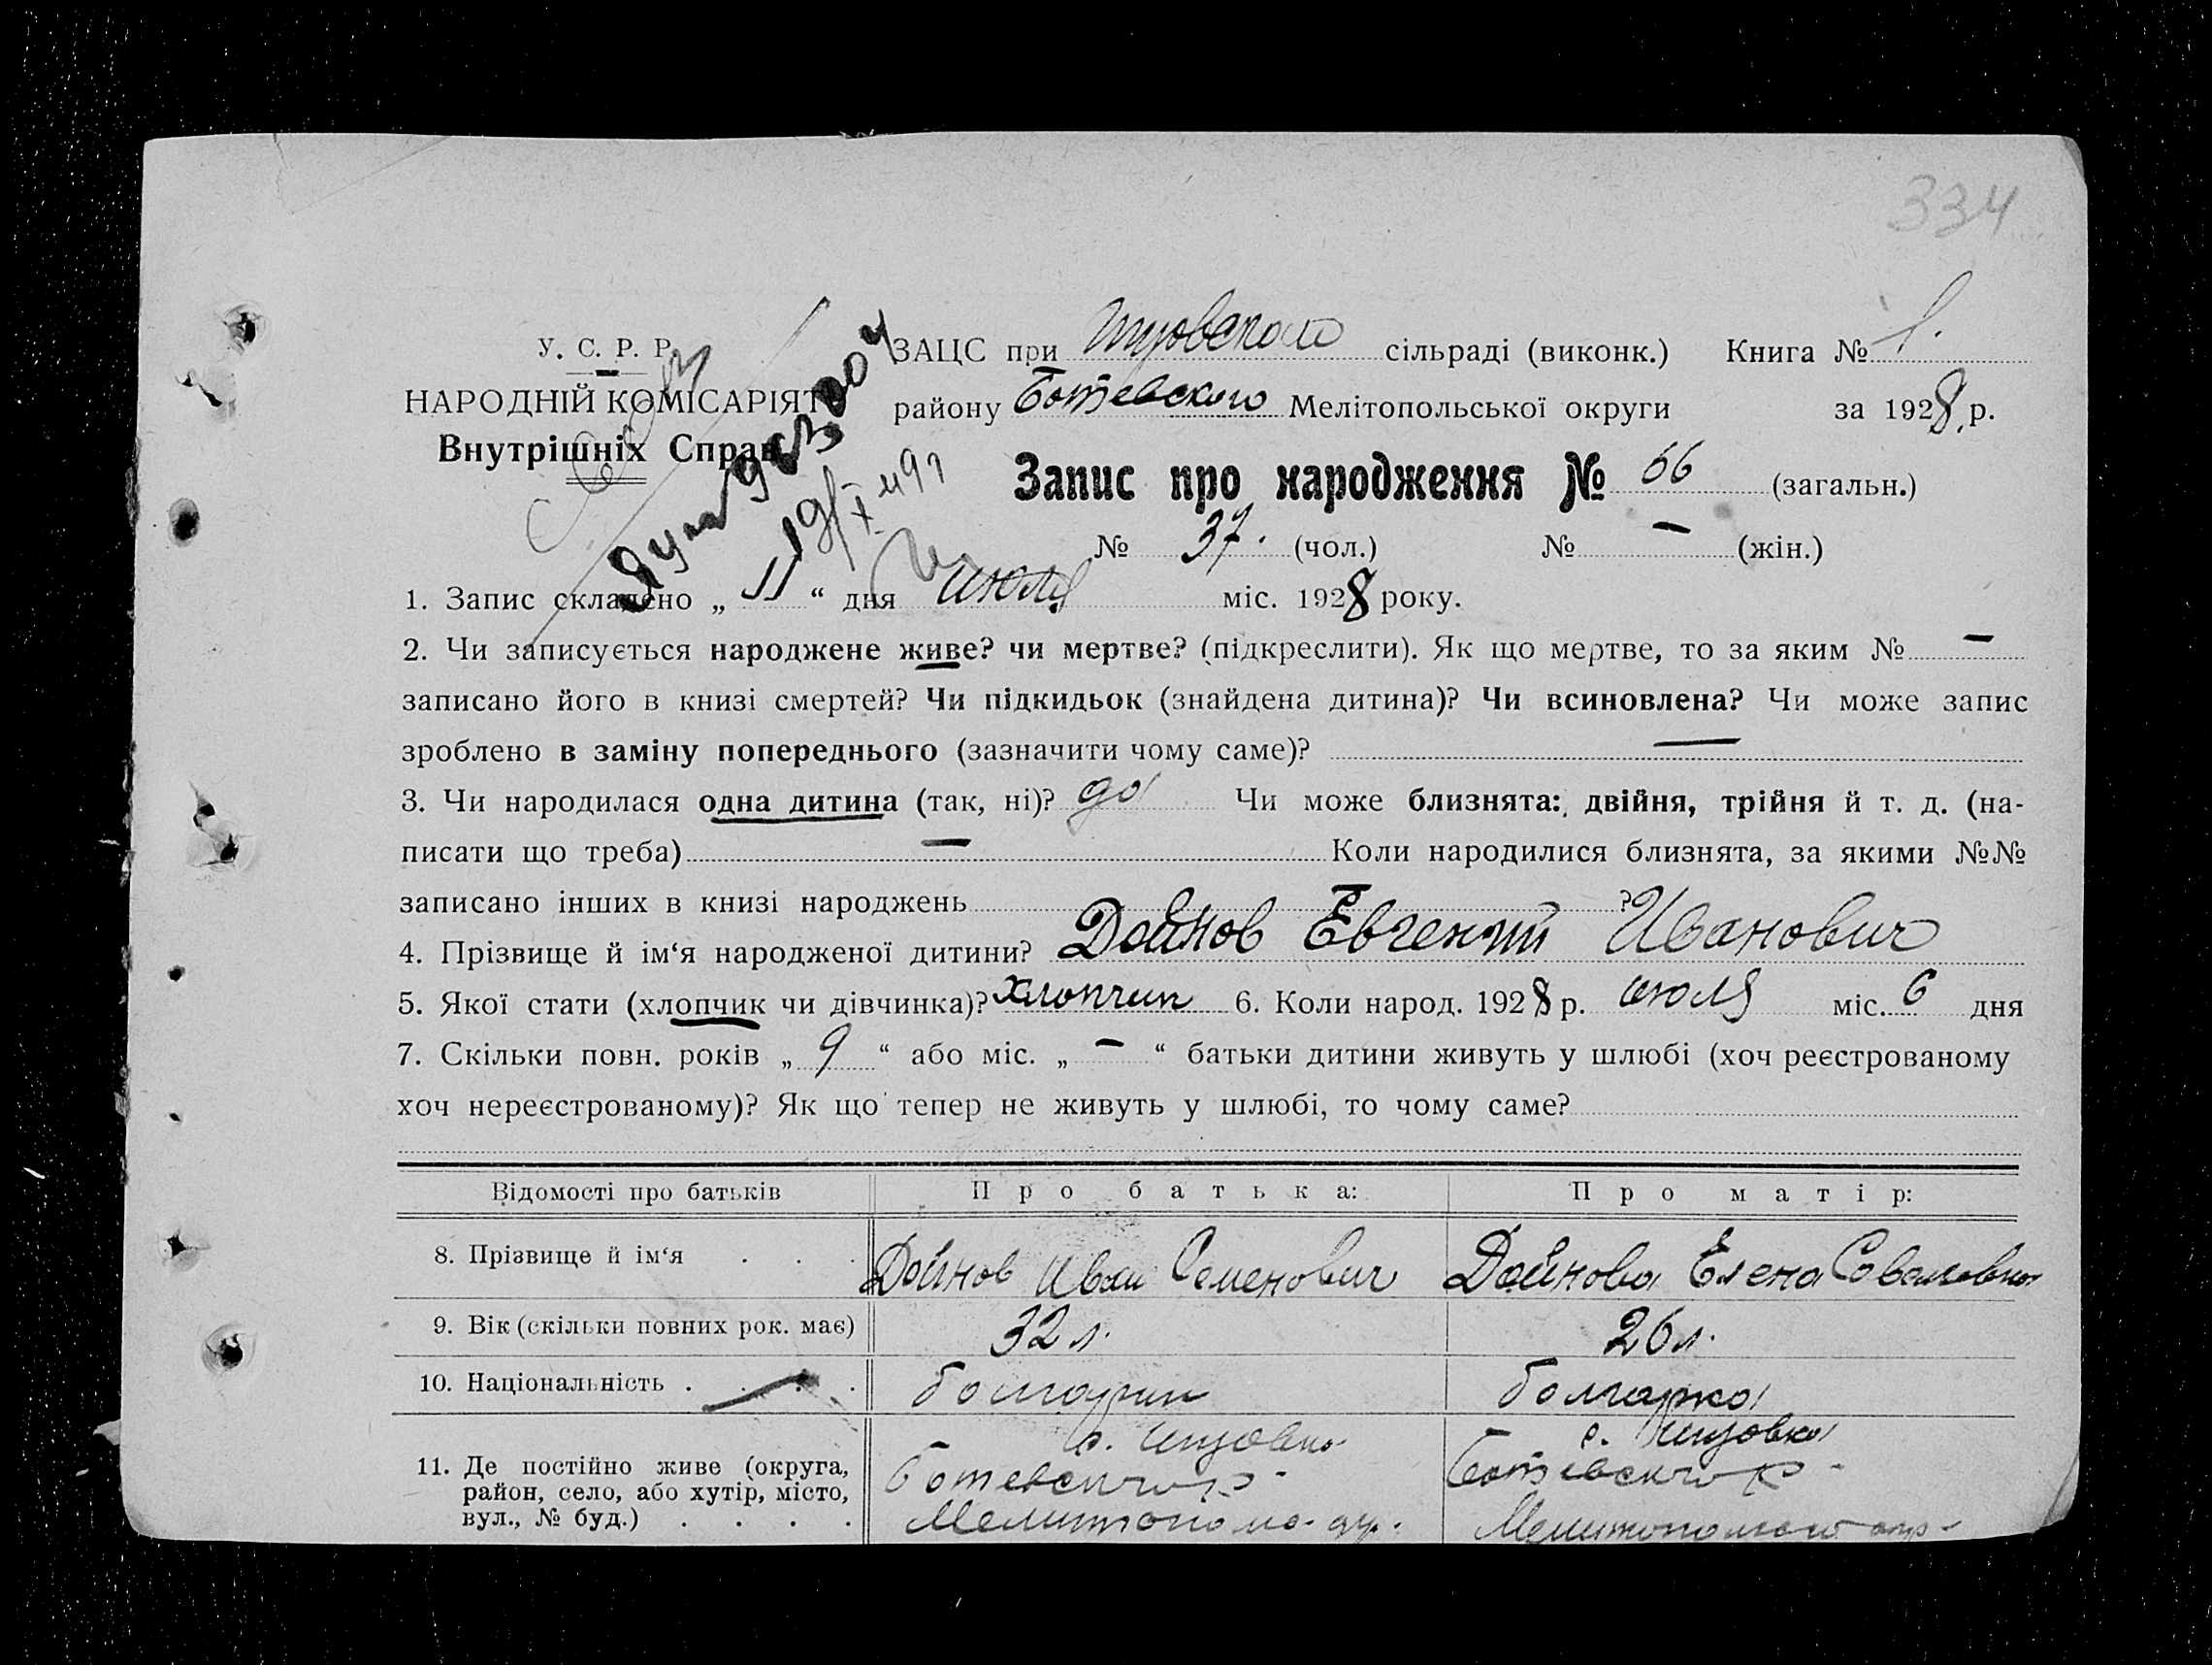 334
У. С. Р. Р.
НАРОДНІЙ КОМІСАРІЯТ
Внутрішніх Справ
ЗАЦС при сільраді (виконк.) Книга № 1.
району Ботевского Мелітопольської округи за 1928 р.
Запис про народження № 66 (загальн.)
№ 37. (чол.) № — (жін.)
1. Запис складено „ 11 “ дня июля міс. 1928 року.
2. Чи записується народжене живе? чи мертве? (підкреслити). Як що мертве, то за яким № —
записано його в книзі смертей? Чи підкидьок (знайдена дитина)? Чи всиновлена? Чи може запис
зроблено в заміну попереднього (зазначити чому саме)? —
3. Чи народилася одна дитина (так, ні)? да Чи може близнята: двійня, трійня й т. д. (на-
писати що треба) — Коли народилися близнята, за якими №№
записано інших в книзі народжень ?
4. Прізвище й ім‘я народженої дитини? Дойнов Евгений Иванович
5. Якої стати (хлопчик чи дівчинка)? хлопчик 6. Коли народ. 1928 р. июля міс. 6 дня
7. Скільки повн. років „ 9 “ або міс. „ — “ батьки дитини живуть у шлюбі (хоч реєстрованому
хоч нереєстрованому)? Як що тепер не живуть у шлюбі, то чому саме?
Відомості про батьків Про батька: Про матір:
8. Прізвище й ім‘я . . . Дойнов Иван Семенович Дойнова Елена
9. Вік (скільки повних рок. має) 32 л. 26 л.
10. Національність . . . . болгарин болгарка
11. Де постійно живе (округа,
район, село, або хутір, місто,
вул., № буд.) . . . .